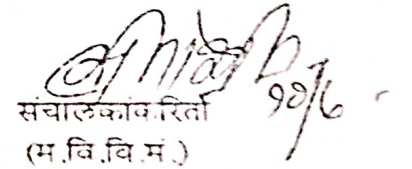 १०/६
संचालकांकरिता
(म.वि.वि.मं.)